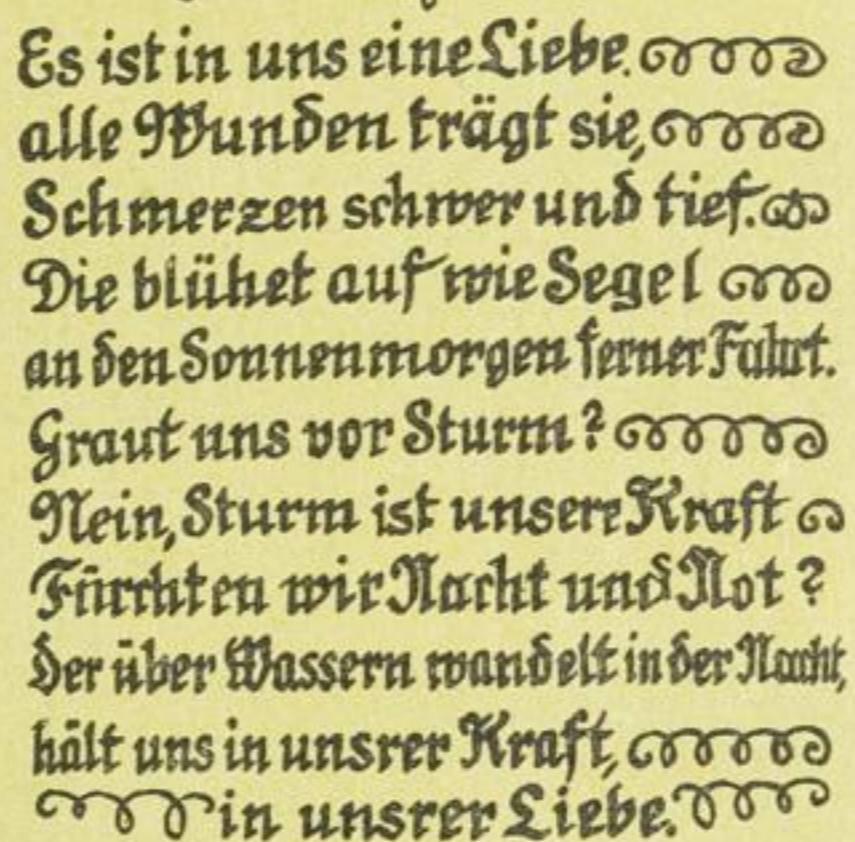 Es ist in uns eine Liebe.
alle Wunden trägt sie,
Schmerzen schwer und tief.
Die blühet auf wie Segel
an den Sonnenmorgen ferner Fahrt.
Graut uns vor Sturm?
Nein, Sturm ist unsere Kraft
Fürchten wir Nacht und Not?
Der über Wassern wandelt in der Nacht,
hält uns in unsrer Kraft,
in unsrer Liebe.